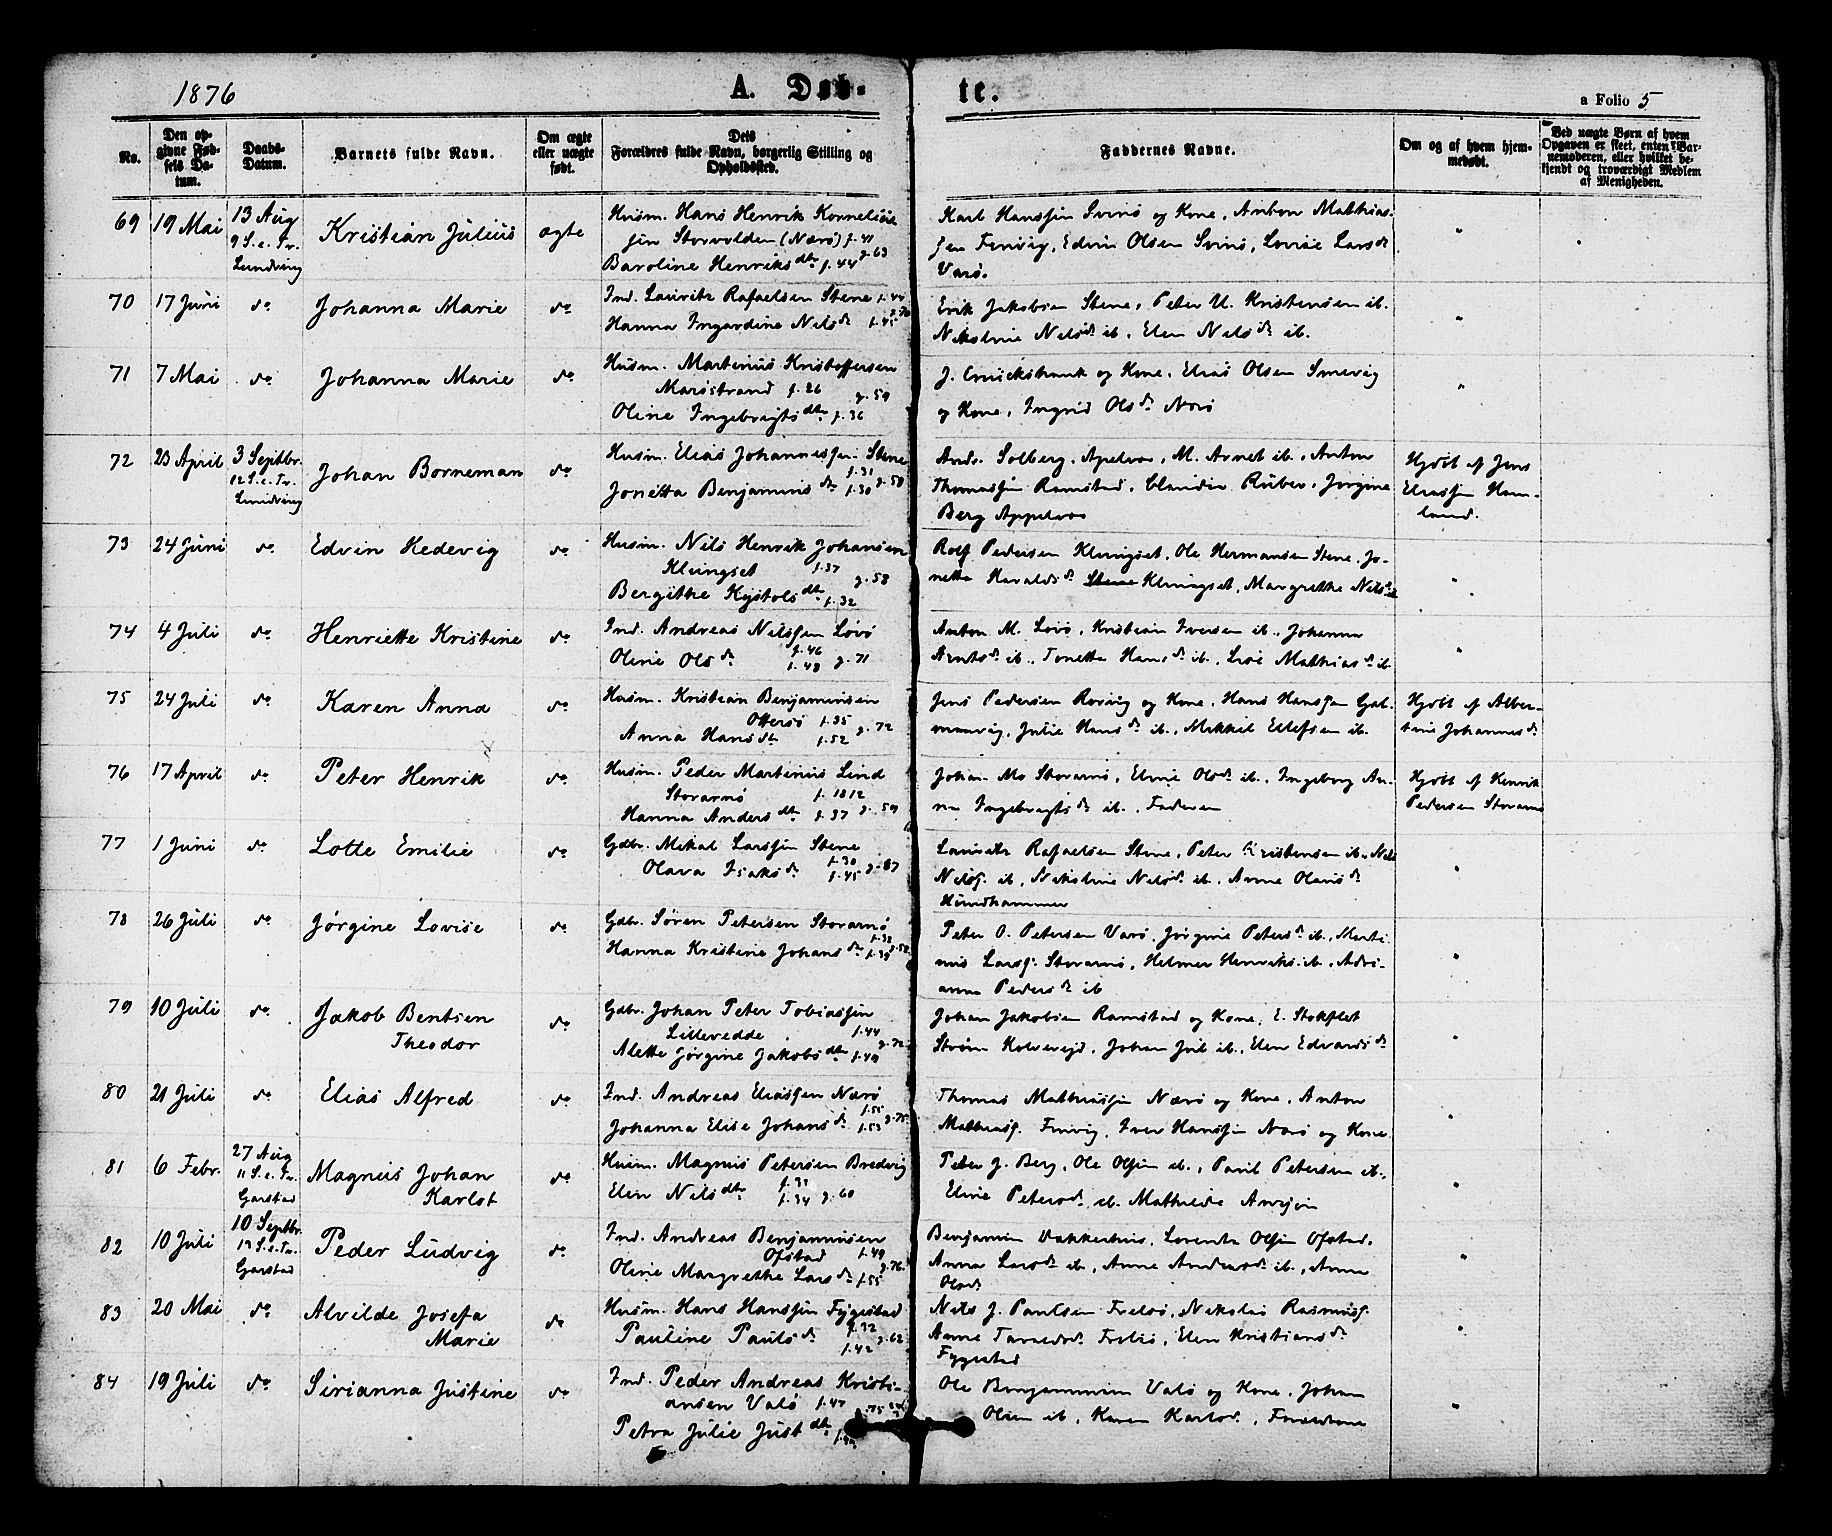 1876
A. Døbte.
a Folio 5
No.
Den opgivne Fødsels Datum.
Daabs-Datum.
Barnets fulde Navn.
Om ægte eller uægte født.
Dets Forældres fulde Navn, borgerlig Stilling og Opholdssted.
Faddernes Navne.
Om og af hvem hjemmedøbt.
Ved uægte Børn af hvem Opgaven er skeet, enten Barnemoderen, eller hvilket bekjendt og troværdigt Medlem af Menigheden.
69 19 Mai 13 Aug 9 S. e. Tr. Lundring Kristian Julius ægte
Husm. Hans Henrik Kornelius
sen Storvolden (Nærø) f. 41
Baroline Henriksdtr f. 44 g. 63
Karl Hanssen Svinø og Kone, Anton Mathias-
sen Finvig, Edvin Olsen Svinø, Lovise Larsdr
Varø.
"
70 17 Juni do Johanna Marie do
Ind. Lauritz Rafaelsen Stene f. 44
Hanna Ingardine Nilsdr f. 45 g. 70
Erik Jakobsen Stene, Peter U. Kristensen ib.
Nikoline Nilsdr ib., Elen Nilsdr ib.
"
71 7 Mai do Johanna Marie do
Husm. Martinus Kristoffersen
Marøstrand f. 26 g. 59
Oline Ingebrigtsdtr f. 36
J. Cruickshank og Kone, Elias Olsen Smevig
og Kone, Ingrid Olsdr Nærø
"
72 23 April 3 Septbr. 12 S. e. Tr. Lundring Johan Borneman do
Husm. Elias Johannessen Stene
f. 31
Jonetta Benjaminsdr f. 30 g. 58
Andr. Solberg, Apelvær, M. Arnet ib., Anton
Thomassen Ramstad, Claudia Ruber, Jørgine
Berg Appelvær
Hjdbt af Jens
Eliassen Ham-
land.
73 24 Juni do Edvin Hedevig do
Husm. Nils Henrik Johansen
Klungset f. 37 g. 58
Bergithe Kjstolsdtr f. 32
Rolf Pedersen Klungset, Ole Hermansen Stene, Jo-
netta Haraldsdr Klungset, Margrethe Nilsdr
"
74 4 Juli do Henriette Kristine do
Ind. Andreas Nilssen Løvø
f. 46
Oline Olsdr f. 48 g. 71
Anton M. Lovø, Kristian Iversen ib., Johanna
Arntsdr ib., Tonetta Hansdr ib., Lise Mathiasdr ib.
"
75 24 Juli do Karen Anna do
Husm. Kristian Benjaminsen
Ottersø f. 35
Anna Hansdtr f. 52 g. 72
Jens Pedersen Roring og Kone, Hans Hanssen Gal-
manvig, Julie Hansdr ib., Mikkel Ellefsen ib.
Hjdbt af Alber-
tine Johannesdr
76 17 April do Peter Henrik do
Husm. Peder Martinus Lind
Storarnø f. 1812
Hanna Andersdtr f. 37 g. 59
Johan Mo Storarnø, Eline Olsdr ib., Ingeborg An-
na Ingebrigtsdr ib., Faderen
Hjdbt af Henrik
Pedersen Storarnø
77 1 Juni do Lotte Emilie do
Gdbr. Mikal Larssen Stene
f. 30
Olava Isaksdr f. 45 g. 67
Lauritz Rafaelsen Stene, Peter Kristensen ib., Nils
Nilss. ib., Nikoline Nilsdr ib., Anne Olausdr
Hundhammer
"
78 26 Juli do Jørgine Lovise do
Gdbr. Søren Petersen Storarnø
f. 32
Hanna Kristine Johansdr f. 35 g. 58
Peter O. Petersen Varø, Jørgine Petersdr ib., Marti-
nus Larss. Storarnø, Helmer Henriks. ib., Adri-
anna Pedersdr ib
"
79 10 Juli do Jakob Bentsen
Theodor do
Gdbr. Johan Peter Tobiassen
Lillevedde f. 44
Alette Jørgine Jakobsdtr f. 49 g. 72
Johan Jakobsen Ramstad og Kone, E. Stokflet
Strøm Kolvereid, Johan Juil ib., Elen Edvardsdr
"
80 21 Juli do Elias Alfred do
Ind. Andreas Eliassen Nærø
f. 55
Johanna Elise Johansdr f. 53 g. 75
Thomas Mathiassen Nærø og Kone, Anton
Mathiass. Finvig, Iver Hanssen Nærø og Kone
"
81 6 Febr. 27 Aug 11 S. e. Tr. Garstad Magnus Johan
Karlot do
Husm. Magnus Petersen Bredvig
f. 31
Elen Nilsdtr f. 34 g. 60
Peter J. Berg, Ole Olsen ib., Paul Petersen ib.,
Eline Petersdr ib. Mathilde
"
82 10 Juli 10 Septbr. 13 S. e. Tr. Garstad Peder Ludvig do
Ind. Andreas Benjaminsen
Ofstad f. 49
Oline Margrethe Larsdr f. 55 g. 76
Benjamin Vakkerhus, Lorents Olsen Ofstad,
Anna Larsdr ib., Anne Andersdr ib., Anne
Olsdr
"
83 20 Mai do Alvilde Josefa
Marie do
Husm. Hans Hanssen Fygestad
f. 32
Pauline Paulsdr f. 42 g. 62
Nils J. Paulsen Frelsø, Nikolai Rasmuss.
Anne Frelsø, Elen Kristiansdr
Fygestad
"
84 19 Juli do Sirianna Justine do
Ind. Peder Andreas Kristi-
ansen Valø f. 47 g. 75
Petra Julie Justdtr
Ole Benjaminsen Valø og Kone, Johan
Olsen ib., Karen Karlsdr, Forældrene
"